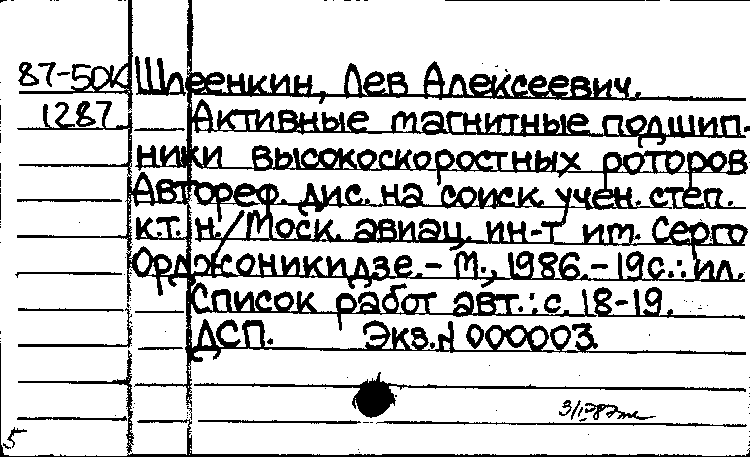 87-50К Шлеенкин, Лев Алексеевич.
1287 Активные магнитные подшип-
ники высокоскоростных роторов
Автореф. дис. на соиск. учен. степ.
к.т.н./Моск. авиац. ин-т им. Серго
Орджоникидзе.- М., 1986.-19с.: ил.
Список работ авт.: с. 18-19.
ДСП. Экз.N 000003.
5